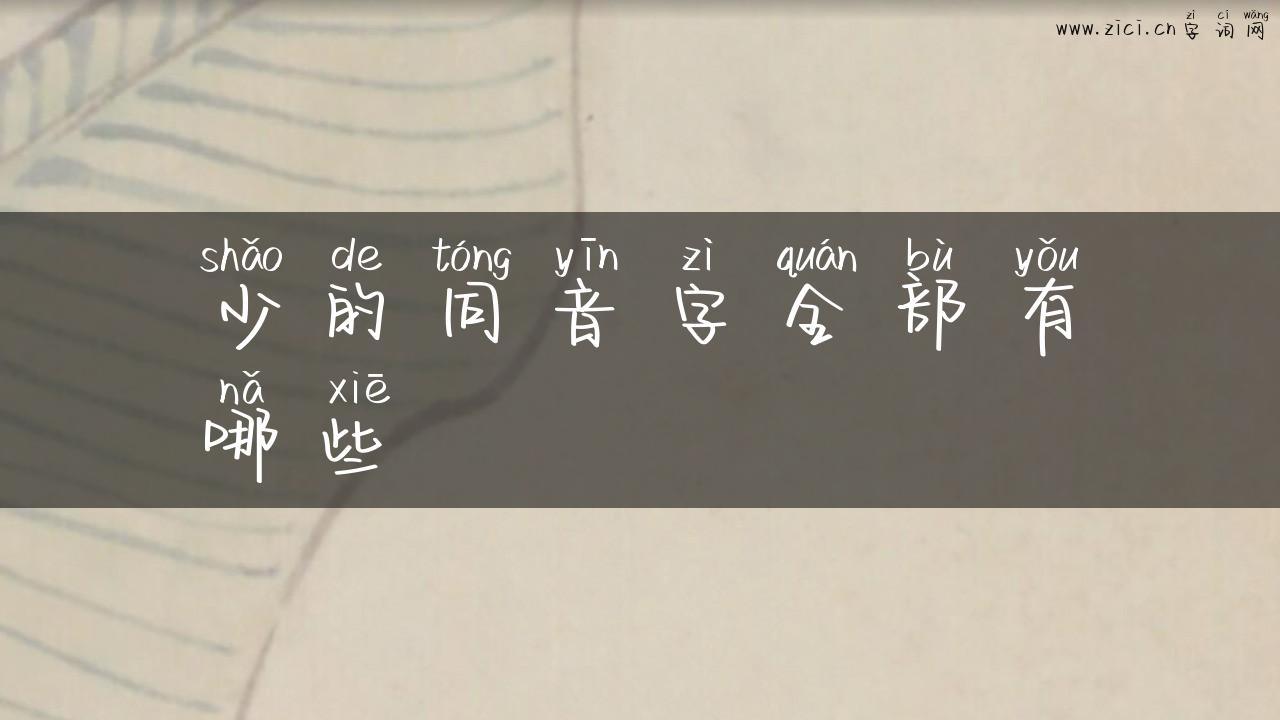 zì cí wǎng
www.zici.cn 字词网
shǎo de tóng yīn zì quán bù yǒu
少的同音字全部有
nǎ xiē
哪些